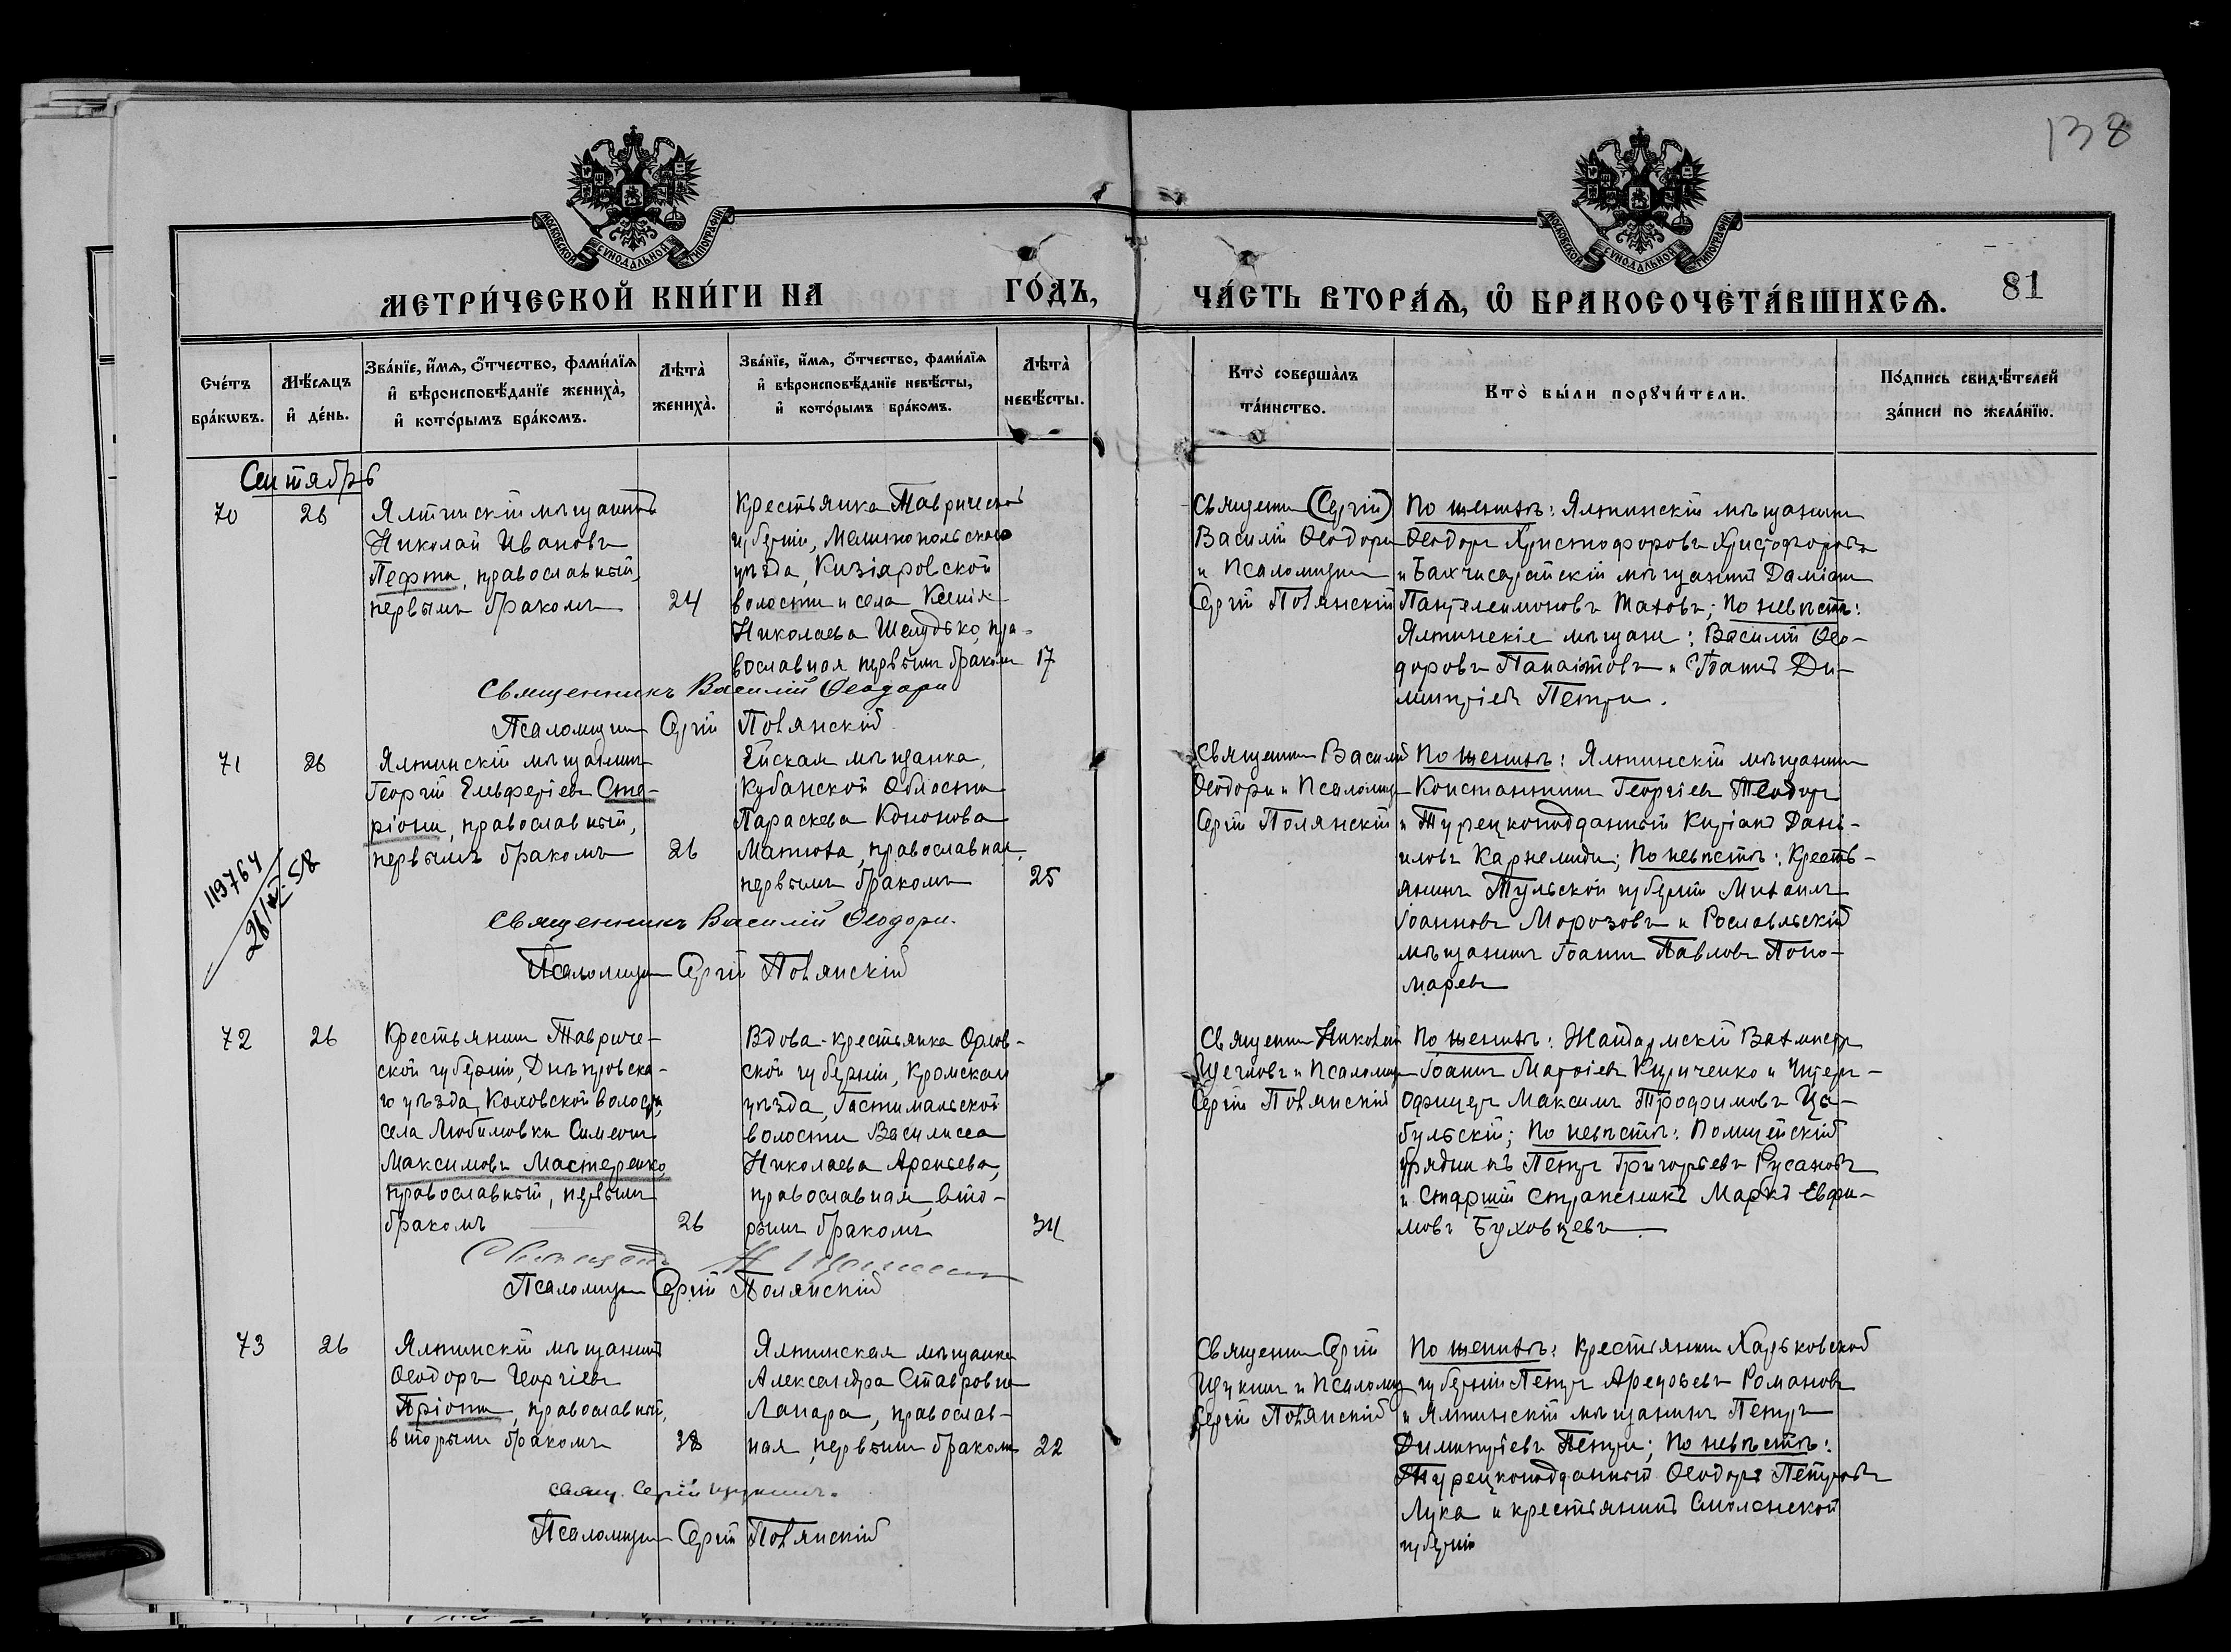 138
МОСКОВСКОЙ СѴНОДАЛЬНОЙ ТИПОГРАФІИ
МОСКОВСКОЙ СѴНОДАЛЬНОЙ ТИПОГРАФІИ
МЕТРИ́ЧЕСКОЙ КНИ́ГИ НА ГО́ДЪ,
ЧА́СТЬ ВТОРА́Ѧ, Ѡ҆ БРАКОСОЧЕТА́ВШИХСѦ.
81
Сче́тъ бра́кѡвъ.
Мѣ́сѧцъ и҆ де́нь.
Зва́нїе, и҆́мѧ, о҆́тчество, фами́лїѧ
и҆ вѣроисповѣ́данїе жениха̀,
и҆ кото́рымъ бра́комъ.
Лѣта̀ жениха̀.
Зва́нїе, и҆́мѧ, о҆́тчество, фами́лїѧ
и҆ вѣроисповѣ́данїе невѣ́сты,
и҆ кото́рымъ бра́комъ.
Лѣта̀ невѣ́сты.
Кто̀ соверша̀лъ
та́инство.
Кто̀ бы́ли порꙋчи́тели.
По́дпись свидѣ́телей
за́писи по жела́нїю.
Сентябрь
70
26
Ялтинскій мѣщанинъ
Николай Ивановъ
Пефти, православный,
первымъ бракомъ
24
Крестьянка Таврической
губерніи, Мелитопольскаго
уѣзда, Кизіяровской
волости и села Ксенія
Николаева Шелудько, пра-
вославная первымъ бракомъ
17
Священни (Сергій)
Василій Ѳеодори
и Псаломщик
Сергій Полянскій
По женихѣ: Ялтинскій мѣщанинъ
Ѳеодоръ Христофоровъ Христофоровъ
и Бахчисарайскій мѣщанинъ Даміанъ
Пантелеимоновъ Таховъ; По невѣстѣ:
Ялтинскіе мѣщане: Василій Ѳео-
доровъ Панаіотовъ и Іоаннъ Ди-
митріевъ Петри.
Священникъ Василій Ѳеодори
Псаломщик Сергій Полянскій
71
26
Ялтинскій мѣщанинъ
Георгій Елевферіевъ Сте-
ріони, православный,
первымъ бракомъ
26
Ейская мѣщанка,
Кубанской Области
Параскева Кононова
Матюха, православная,
первымъ бракомъ
25
Священни Василій
Ѳеодори и Псаломщ
Сергій Полянскій
По женихѣ: Ялтинскій мѣщанинъ
Константинъ Георгіевъ Теодоръ
и Турецкоподданный Киріакъ Дані-
иловъ Карнемиди; По невѣстѣ: Кресть-
янинъ Тульской губерніи Михаилъ
Іоанновъ Морозовъ и Рославльскій
мѣщанинъ Іоаннъ Павловъ Поно-
маревъ
119764
26/VI-58
Священникъ Василій Ѳеодори.
Псаломщик Сергій Полянскій
72
26
Крестьянинъ Тавриче-
ской губерніи, Днѣпровска-
го уѣзда, Каховской волости,
села Любимовки Симеонъ
Максимовъ Мастеренко,
православный, первымъ
бракомъ
26
Вдова-крестьянка Орлов-
ской губерніи, Кромскаго
уѣзда, Гостомльской
волости Василисса
Николаева Арсеньева,
православная, вто-
рымъ бракомъ
34
Священни Николай
Щегловъ и Псаломщ
Сергій Полянскій
По женихѣ: Жандармскій Вахмистръ
Іоаннъ Матѳіевъ Кириченко и Унтеръ-
Офицеръ Максимъ Трофимовъ Цы-
бульскій; По невѣстѣ: Полицейскій
урядникъ Петръ Григорьевъ Русановъ
и Старшій стражникъ Маркъ Евфи-
мовъ Буховцевъ.
Псаломщик Сергій Полянскій
73
26
Ялтинскій мѣщанинъ
Ѳеодоръ Георгіевъ
Пріони, православный,
вторымъ бракомъ
38
Ялтинская мѣщанка
Александра Ставровна
Лапара, православ-
ная, первымъ бракомъ
22
Священни Сергій
Щукинъ и Псаломщ
Сергій Полянскій
По женихѣ: Крестьянинъ Харьковской
губерніи Петръ Арефьевъ Романовъ
и Ялтинскій мѣщанинъ Петръ
Димитріевъ Петри; По невѣстѣ:
Турецкоподданный Ѳеодоръ Петровъ
Лука и крестьянинъ Смоленской
губерніи
свящ. Сергій Щукинъ.
Псаломщик Сергій Полянскій